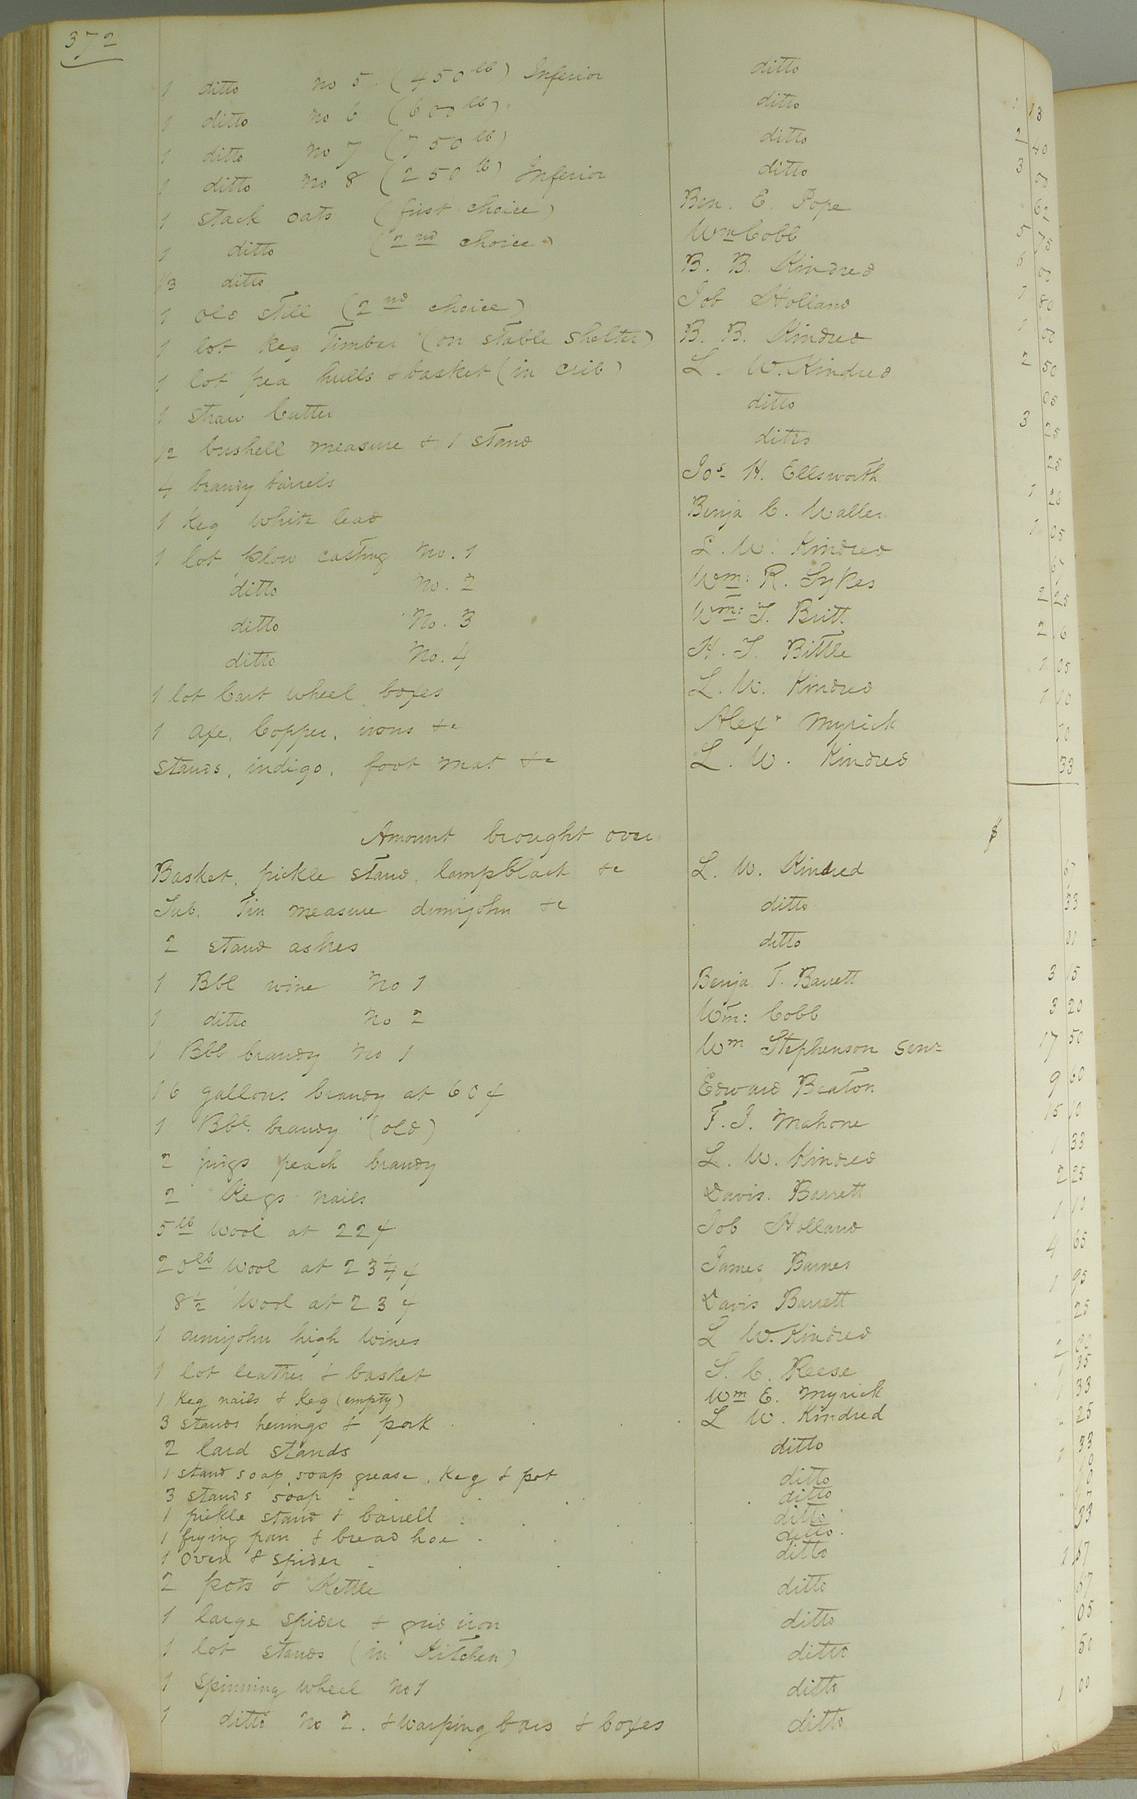 372
1 ditto no 5 (450 lb) Inferior ditto
1 ditto no 6 (600 lb) ditto 1 13
1 ditto no 7 (750 lb) ditto 2 40
1 ditto no 8 (250 lb) Inferior ditto 3
1 stack oats (first choice) Ben. E. Pope
1 ditto (2nd choice) Wm Cobb
1/3 ditto B. B. Kindred
1 old still (2nd choice) Job Holland
1 lot keg Timber (on stable shelter) B. B. Kindred
1 lot pea hulls & basket (in crib) L. W. Kindred 2 50
1 straw cutter ditto 05
1/2 bushell measure & 1 stand ditto 3 25
4 brandy barrels Jos. H. Ellsworth 25
1 keg white lead Benja C. Waller 1 26
1 lot plow casting No. 1 L. W. Kindred 1 05
ditto No. 2 Wm: R. Sykes
ditto No. 3 Wm: T. Britt 2 25
ditto No. 4 H. T. Bittle 2 6
1 lot Cart wheel boxes L. W. Kindred 1 05
1 axe, Copper, irons &c Alexr Myrick 1 10
stands, indigo, foot mat &c L. W. Kindred 33
Amount brought over $
Basket, pickle stand, lampblack &c L. W. Kindred
Tub, Tin measure dimijohn &c ditto 33
2 stand ashes ditto
1 Bbl wine No 1 Benja T. Barrett 3 15
1 ditto No 2 Wm: Cobb 3 20
1 Bbl brandy No 1 Wm Stephenson Senr 17 50
16 gallons brandy at 60 ¢ Edward Beaton 9 60
1 Bbl. brandy (old) F. J. Mahone 15 10
2 jugs peach brandy L. W. Kindred 1 33
2 Kegs nails Davis Barrett 2 25
5 lb Wool at 22 ¢ Job Holland 1 10
20 lb Wool at 23 1/4 ¢ James Barnes 4 65
8 1/2 Wool at 23 ¢ Davis Barrett 1 95
1 dimijohn high Wines L. W. Kindred 25
1 lot leather & basket S. C. Reese
1 keg nails & keg (empty) Wm E. Myrick
3 stands herrings & pork L. W. Kindred
2 lard stands ditto
1 stand soap, soap grease, keg & pot ditto
3 stands soap ditto
1 pickle stand & barrell ditto
1 frying pan & bread hoe ditto
1 oven & spider ditto 1 57
2 pots & Kettle ditto
1 large spider & grid iron ditto 05
1 lot stands (in Kitchen) ditto 50
1 spinning wheel No 1 ditto 1 00
1 ditto No 2. & warping bars & boxes ditto